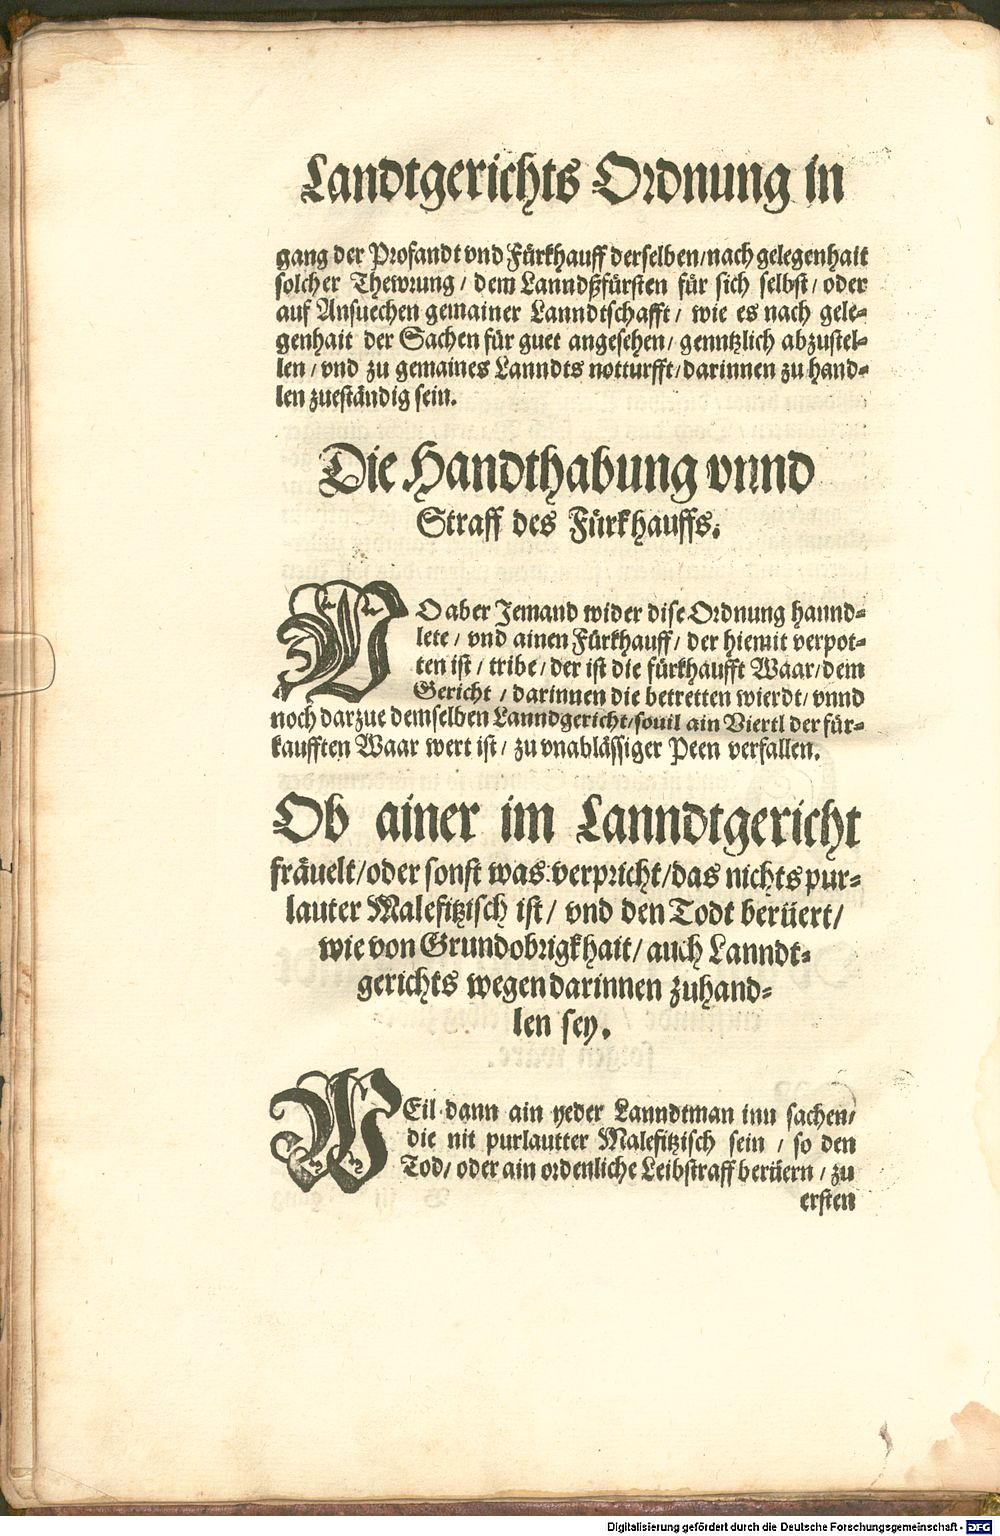 Landtgerichts Ordnung in
gang der Profandt vnd Fürkhauff derselben/nach gelegenhait
solcher Thewrung / dem Lanndßfürsten für sich selbst/ oder
auf Ansuechen gemainer Lanndtschafft/ wie es nach gele-
genhait der Sachen für guet angesehen/ genntzlich abzustel-
len / vnd zu gemaines Lanndts notturfft/darinnen zu hand-
len zueständig sein.
Die Handthabung vnnd
Straff des Fürkhauffs.
WO aber Jemand wider dise Ordnung hannd-
lete / vnd ainen Fürkhauff/ der hiemit verpot-
ten ist / tribe/ der ist die fürkhaufft Waar/dem
Gericht / darinnen die betretten wierdt/ vnnd
noch darzue demselben Lanndgericht/souil ain Viertl der für-
kaufften Waar wert ist/ zu vnablässiger Peen verfallen.
Ob ainer im Lanndtgericht
fräuelt/oder sonst was verpricht/das nichts pur-
lauter Malefitzisch ist/ vnd den Todt berüert/
wie von Grundobrigkhait/ auch Lanndt-
gerichts wegen darinnen zuhand-
len sey.
WEil dann ain yeder Lanndtman inn sachen/
die nit purlautter Malefitzisch sein / so den
Tod/ oder ain ordenliche Leibstraff berüern / zu
ersten
Digitalisierung gefördert durch die Deutsche Forschungsgemeinschaft - DFG